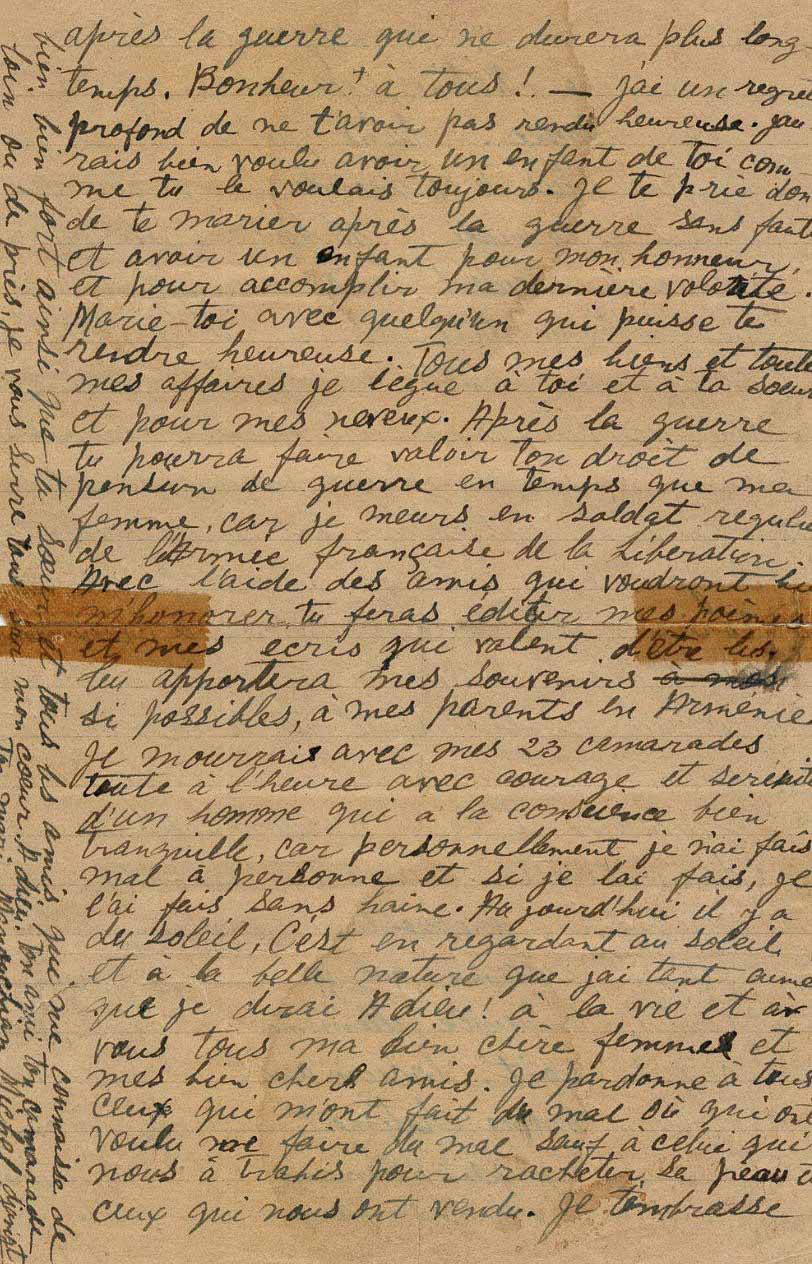 après la guerre qui ne durera plus long
temps. Bonheur! à tous! — j'ai un regre
profond de ne t'avoir pas rendu heureuse. jau
rais bien voulu avoir un enfant de toi com
me tu le voulais toujours. Je te prie don
de te marier après la guerre sans faut
et avoir un enfant pour mon honneur,
et pour accomplir ma dernière volonté.
Marie-toi avec quelqu'un qui puisse te
rendre heureuse. Tous mes biens et toute
mes affaires je lègue à toi et à ta sœur
et pour mes neveux. Après la guerre
tu pourra faire valoir ton droit de
pension de guerre en temps que ma
femme, car je meurs en soldat regulie
de l'Armée française de la Libération.
Avec l'aide des amis qui voudront bi
m'honorer, tu feras editer mes poèmes
et mes ecris qui valent d'être lus.
tu apportera mes souvenirs à mes
si possibles, à mes parents en Arménie
Je mourrais avec mes 23 camarades
toute à l'heure avec courage et serénité
d'un homme qui a la conscience bien
tranquille, car personnellement je n'ai fais
mal à personne et si je lai fais, je
l'ai fais sans haine. Aujourd'hui il y a
du soleil, C'est en regardant au soleil
et à la belle nature que jai tant aime
que je dirai Adieu! à la vie et à
vous tous ma bien chère femme et
mes bien chers amis. Je pardonne à tous
ceux qui m'ont fait du mal où qui ont
voulu me faire du mal sauf à celui qui
nous à trahis pour racheter sa peau
ceux qui nous ont vendu. Je t'embrasse
bien bien fort ainsi que ta sœur et tous les amis qui me connaisse de
loin ou de près, je vous serre tous sur mon cœur. Adieu. Ton ami ton camarade
Ton mari Manouchian Michel djanigt